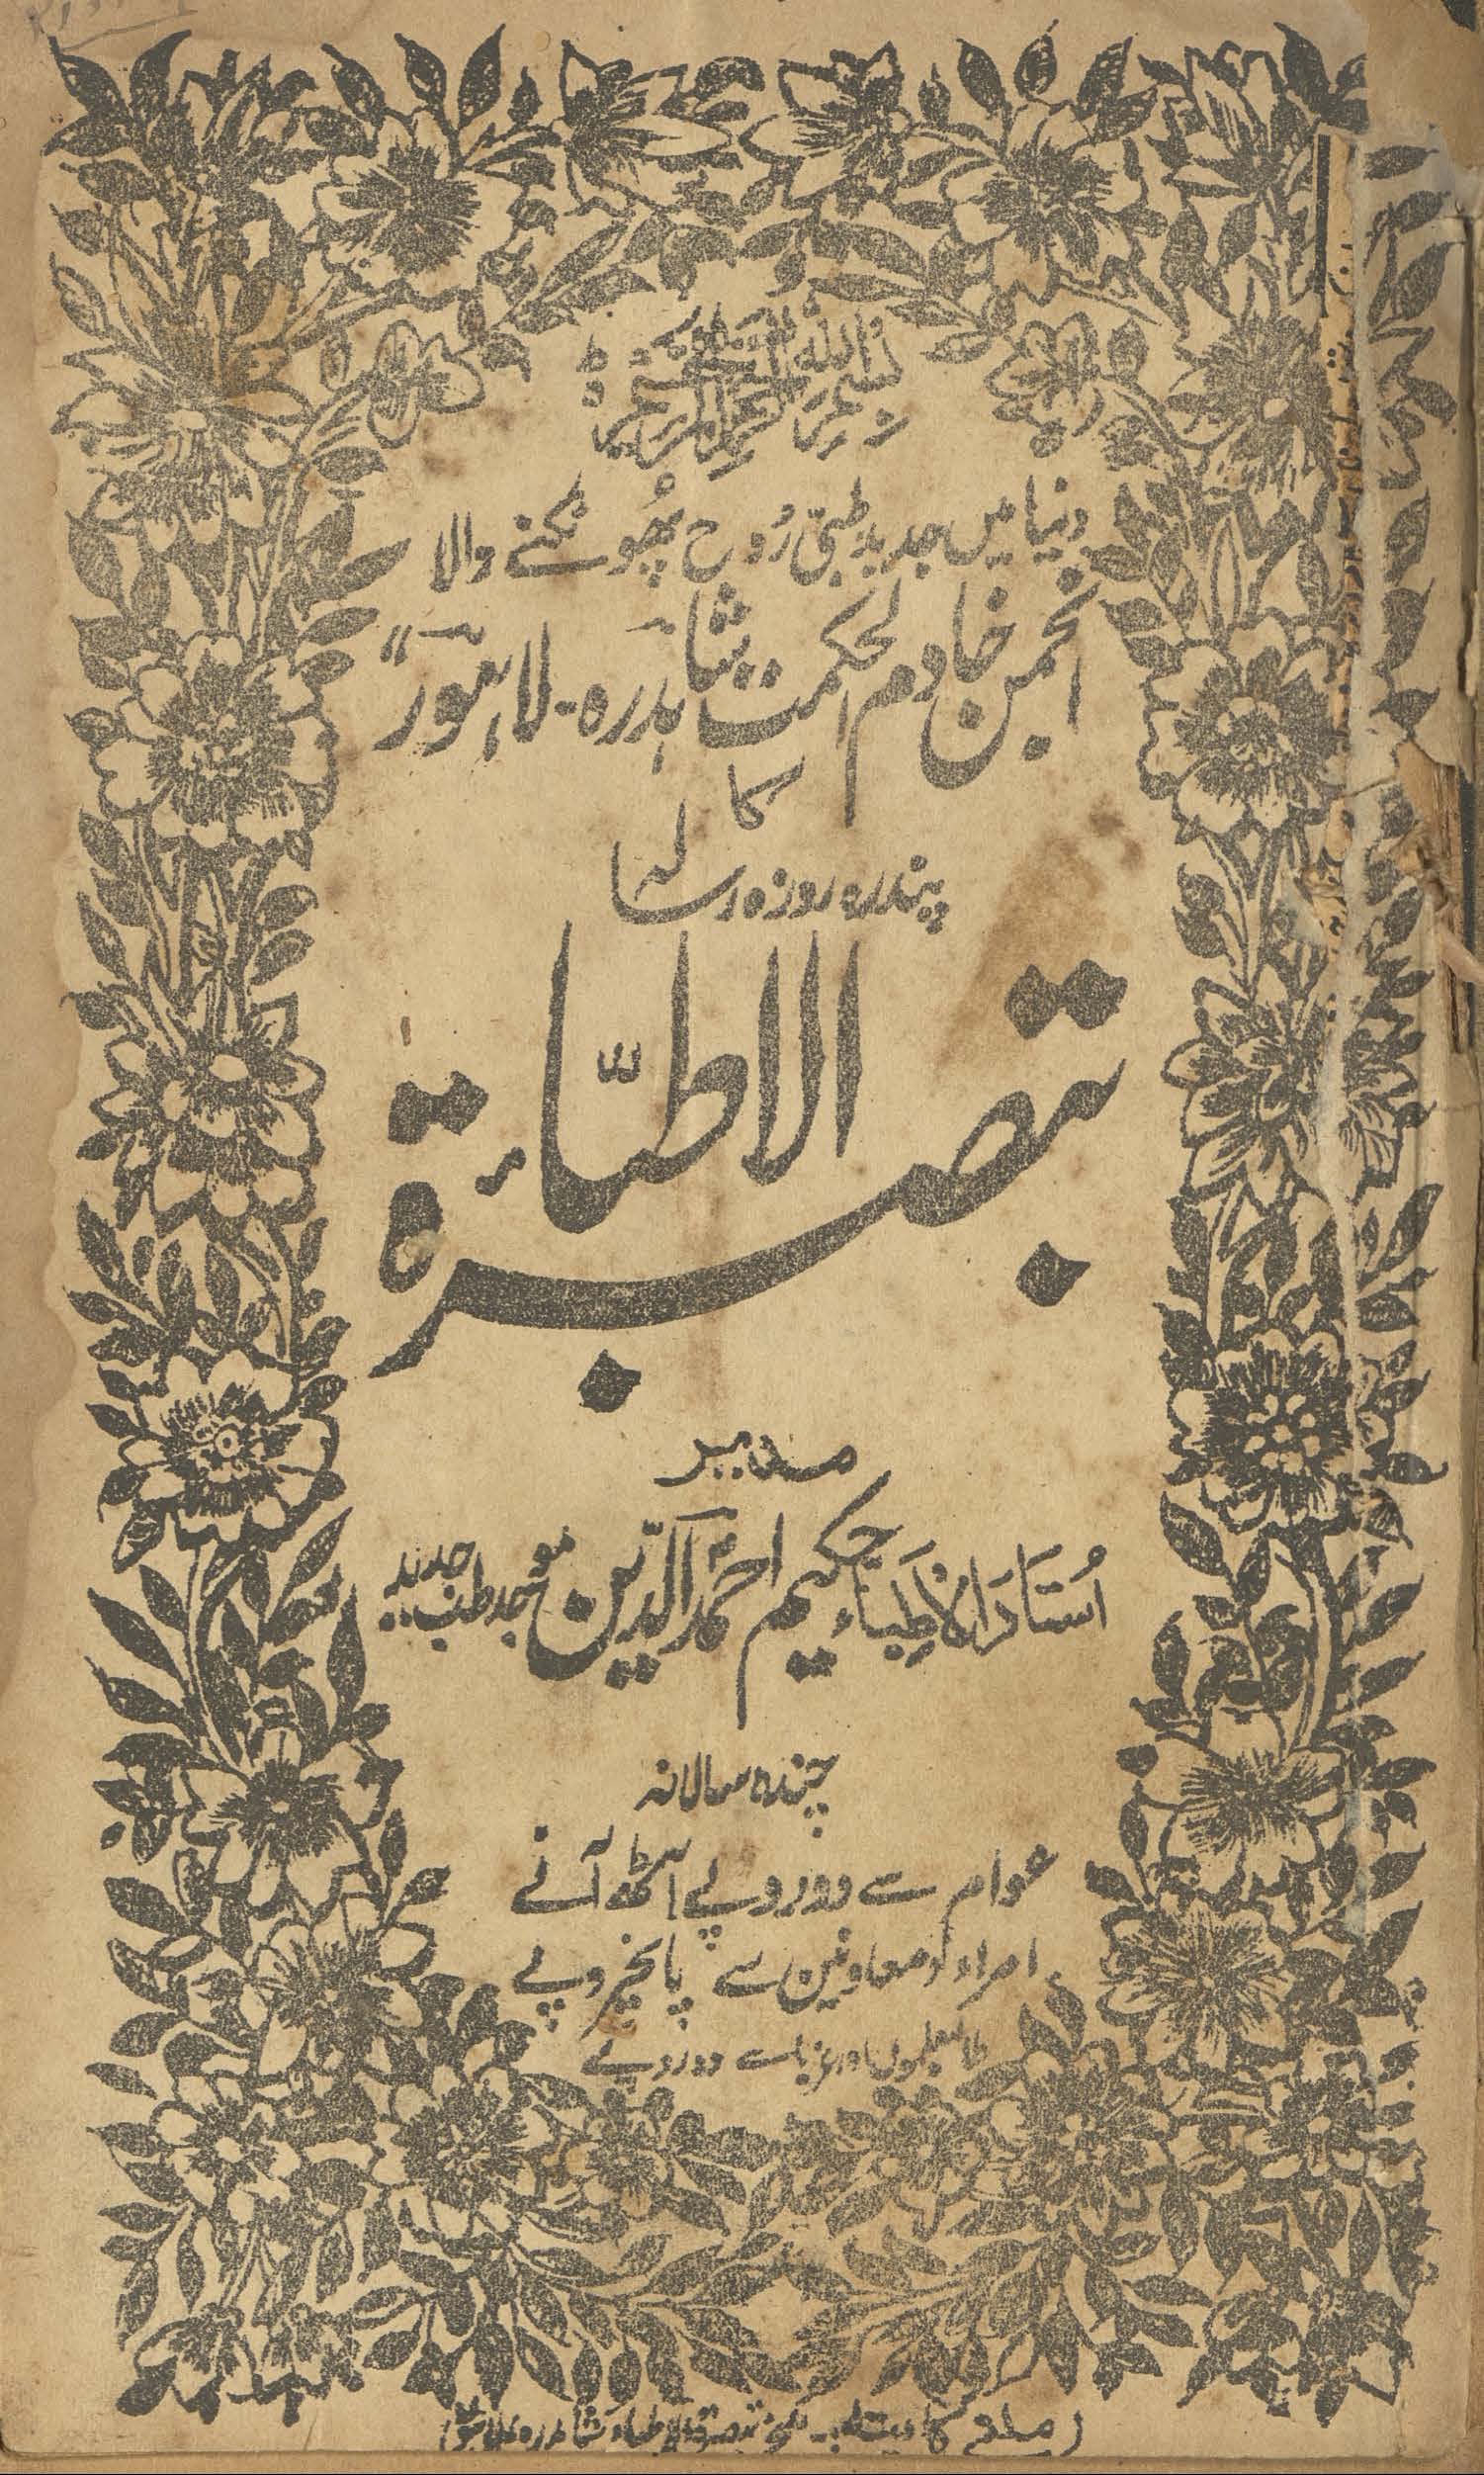 بسم اللہ الرحمن الرحیم
دنیا میں جدید طبّی رُوح پھُونکنے والا
انجمن خادم الحکمت شاہدرہ۔ لاہور"
کا
پندرہ روزہ رسالہ
تبصرۃ الاطبّاء
مدیر
اُستاذ الاطباء حکیم احمد الدّین موجد طب جدید
چندہ سالانہ
عوام سے دو روپے آٹھ آنے
امراء و معاونین سے پانچروپے
طالبعلموں اور غرباسے دو روپے
(ملنے کا پتہ:۔ تبصرۃ الاطباء شاہدرہ لاہور)